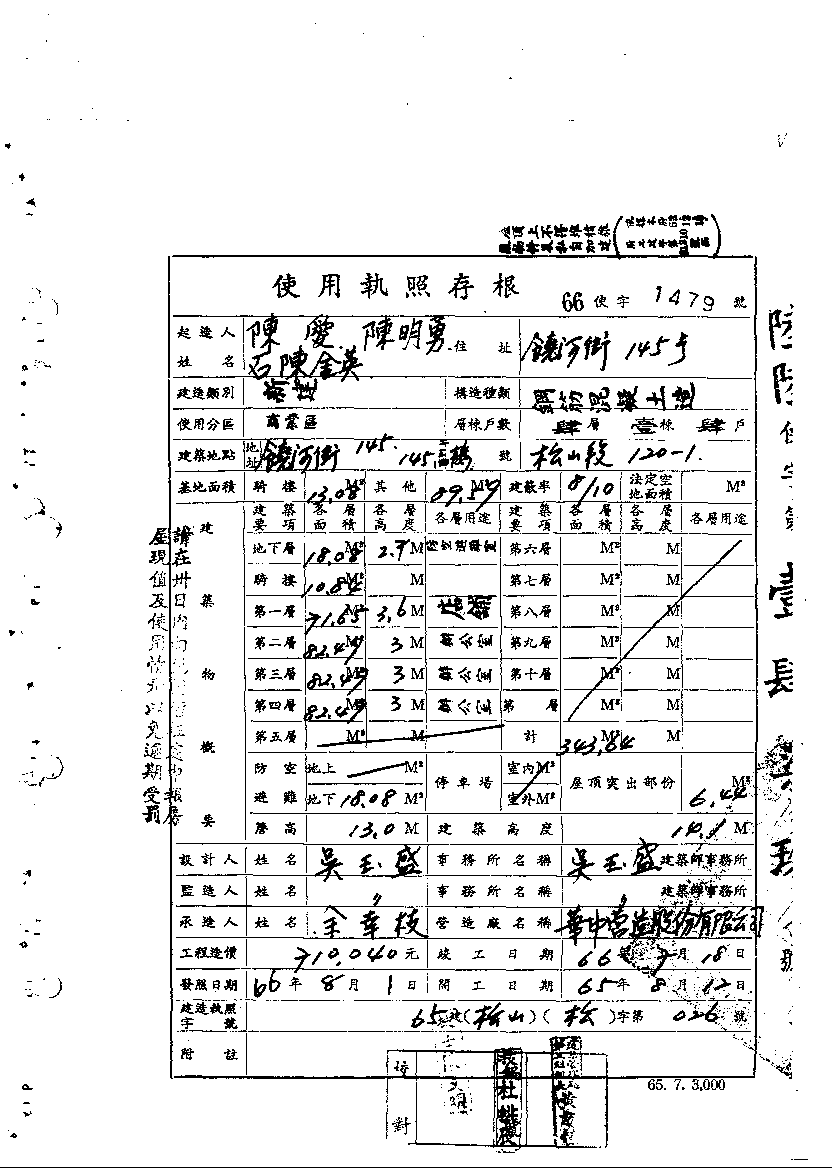 使用執照存根
66 使字 1479 號
起造人姓名 陳愛 陳明勇 石陳金英 住址 饒河街 145号
建造類別 新建 構造種類 鋼筋混凝土造
使用分區 商業區 層棟戶數 肆層 壹棟 肆戶
建築地點 地址 饒河街 145. 145 號 松山段 120-1.
基地面積 騎樓 13.08 M² 其他 89.59 M² 建蔽率 8/10 法定空地面積 M²
建築物概要 建築要項 各層面積 各層高度 各層用途 建築要項 各層面積 各層高度 各層用途
地下層 18.08 M² 2.7 M 第六層 M² M
騎樓 10.84 M² M 第七層 M² M
第一層 71.65 M² 3.6 M 店舖 第八層 M² M
第二層 82.49 M² 3 M 辦公室 第九層 M² M
第三層 82.49 M² 3 M 辦公室 第十層 M² M
第四層 82.49 M² 3 M 辦公室 第 層 M² M
第五層 M² M 計 343.64 M² M
防空避難 地上 M² 停車場 室內 M² 屋頂突出部份 6.44 M²
地下 18.08 M² 室外 M²
簷高 13.0 M 建築高度 14.1 M
設計人 姓名 吳玉盛 事務所名稱 吳玉盛 建築師事務所
監造人 姓名 〃 事務所名稱 〃 建築師事務所
承造人 姓名 余幸枝 營造廠名稱 華中營造股份有限公司
工程造價 710,040 元 竣工日期 66年 7月 18日
發照日期 66年 8月 1日 開工日期 65年 8月 12日
建造執照字號 65 建(松山)(松)字第 026 號
附註
65. 7. 3,000
校對